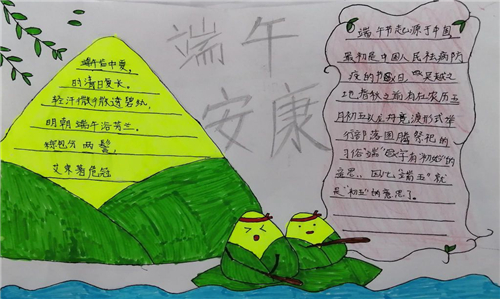 端午
安康
端午临中夏，
时清日复长。
轻汗微微透碧纨，
明朝端午浴芳兰。
粽包分两髻，
艾束著危冠
端午节起源于中国
最初是中国人民祛病防
疫的节日，
地春秋之前有在农历五
月初五以龙舟竞渡形式举
行部落图腾祭祀的
习俗"端"字有"初始"的
意思，因此"端五"就
是"初五"的意思了。